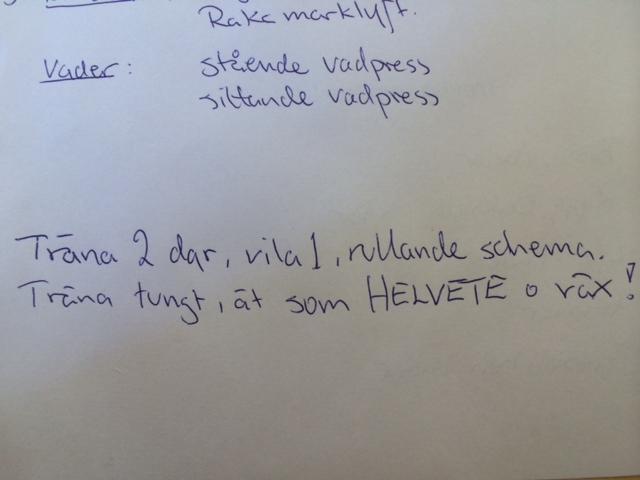 Raka marklyft.
Vader: stående vadpress
sittande vadpress
Träna 2 dar, vila 1, rullande schema.
Träna tungt, ät som HELVETE o väx!